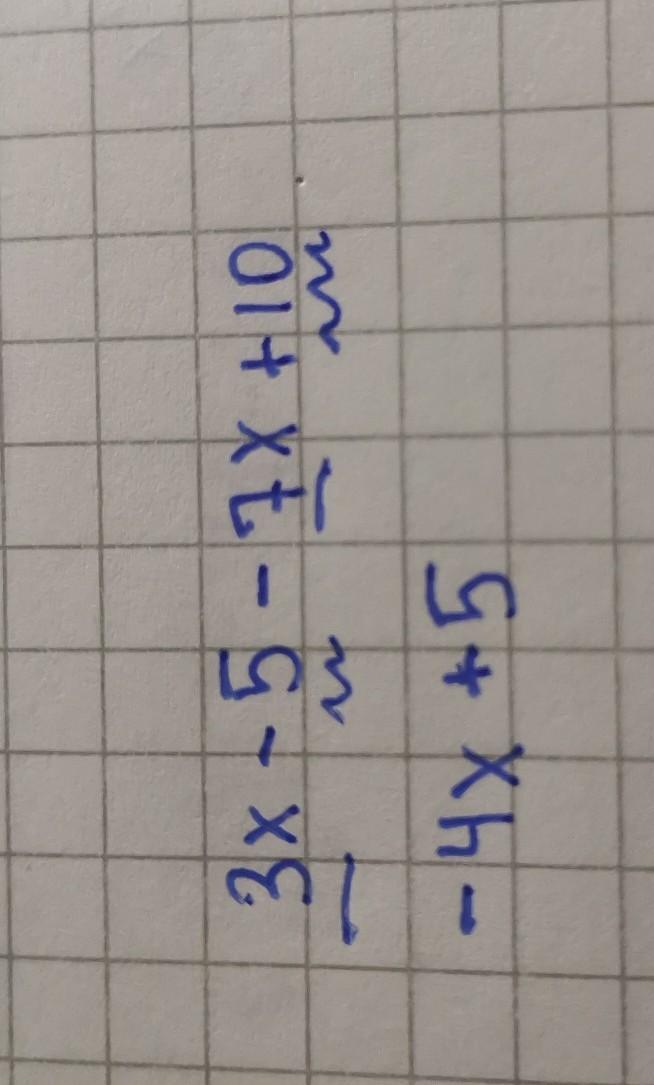 3x - 5 - 7x + 10
- 4x + 5